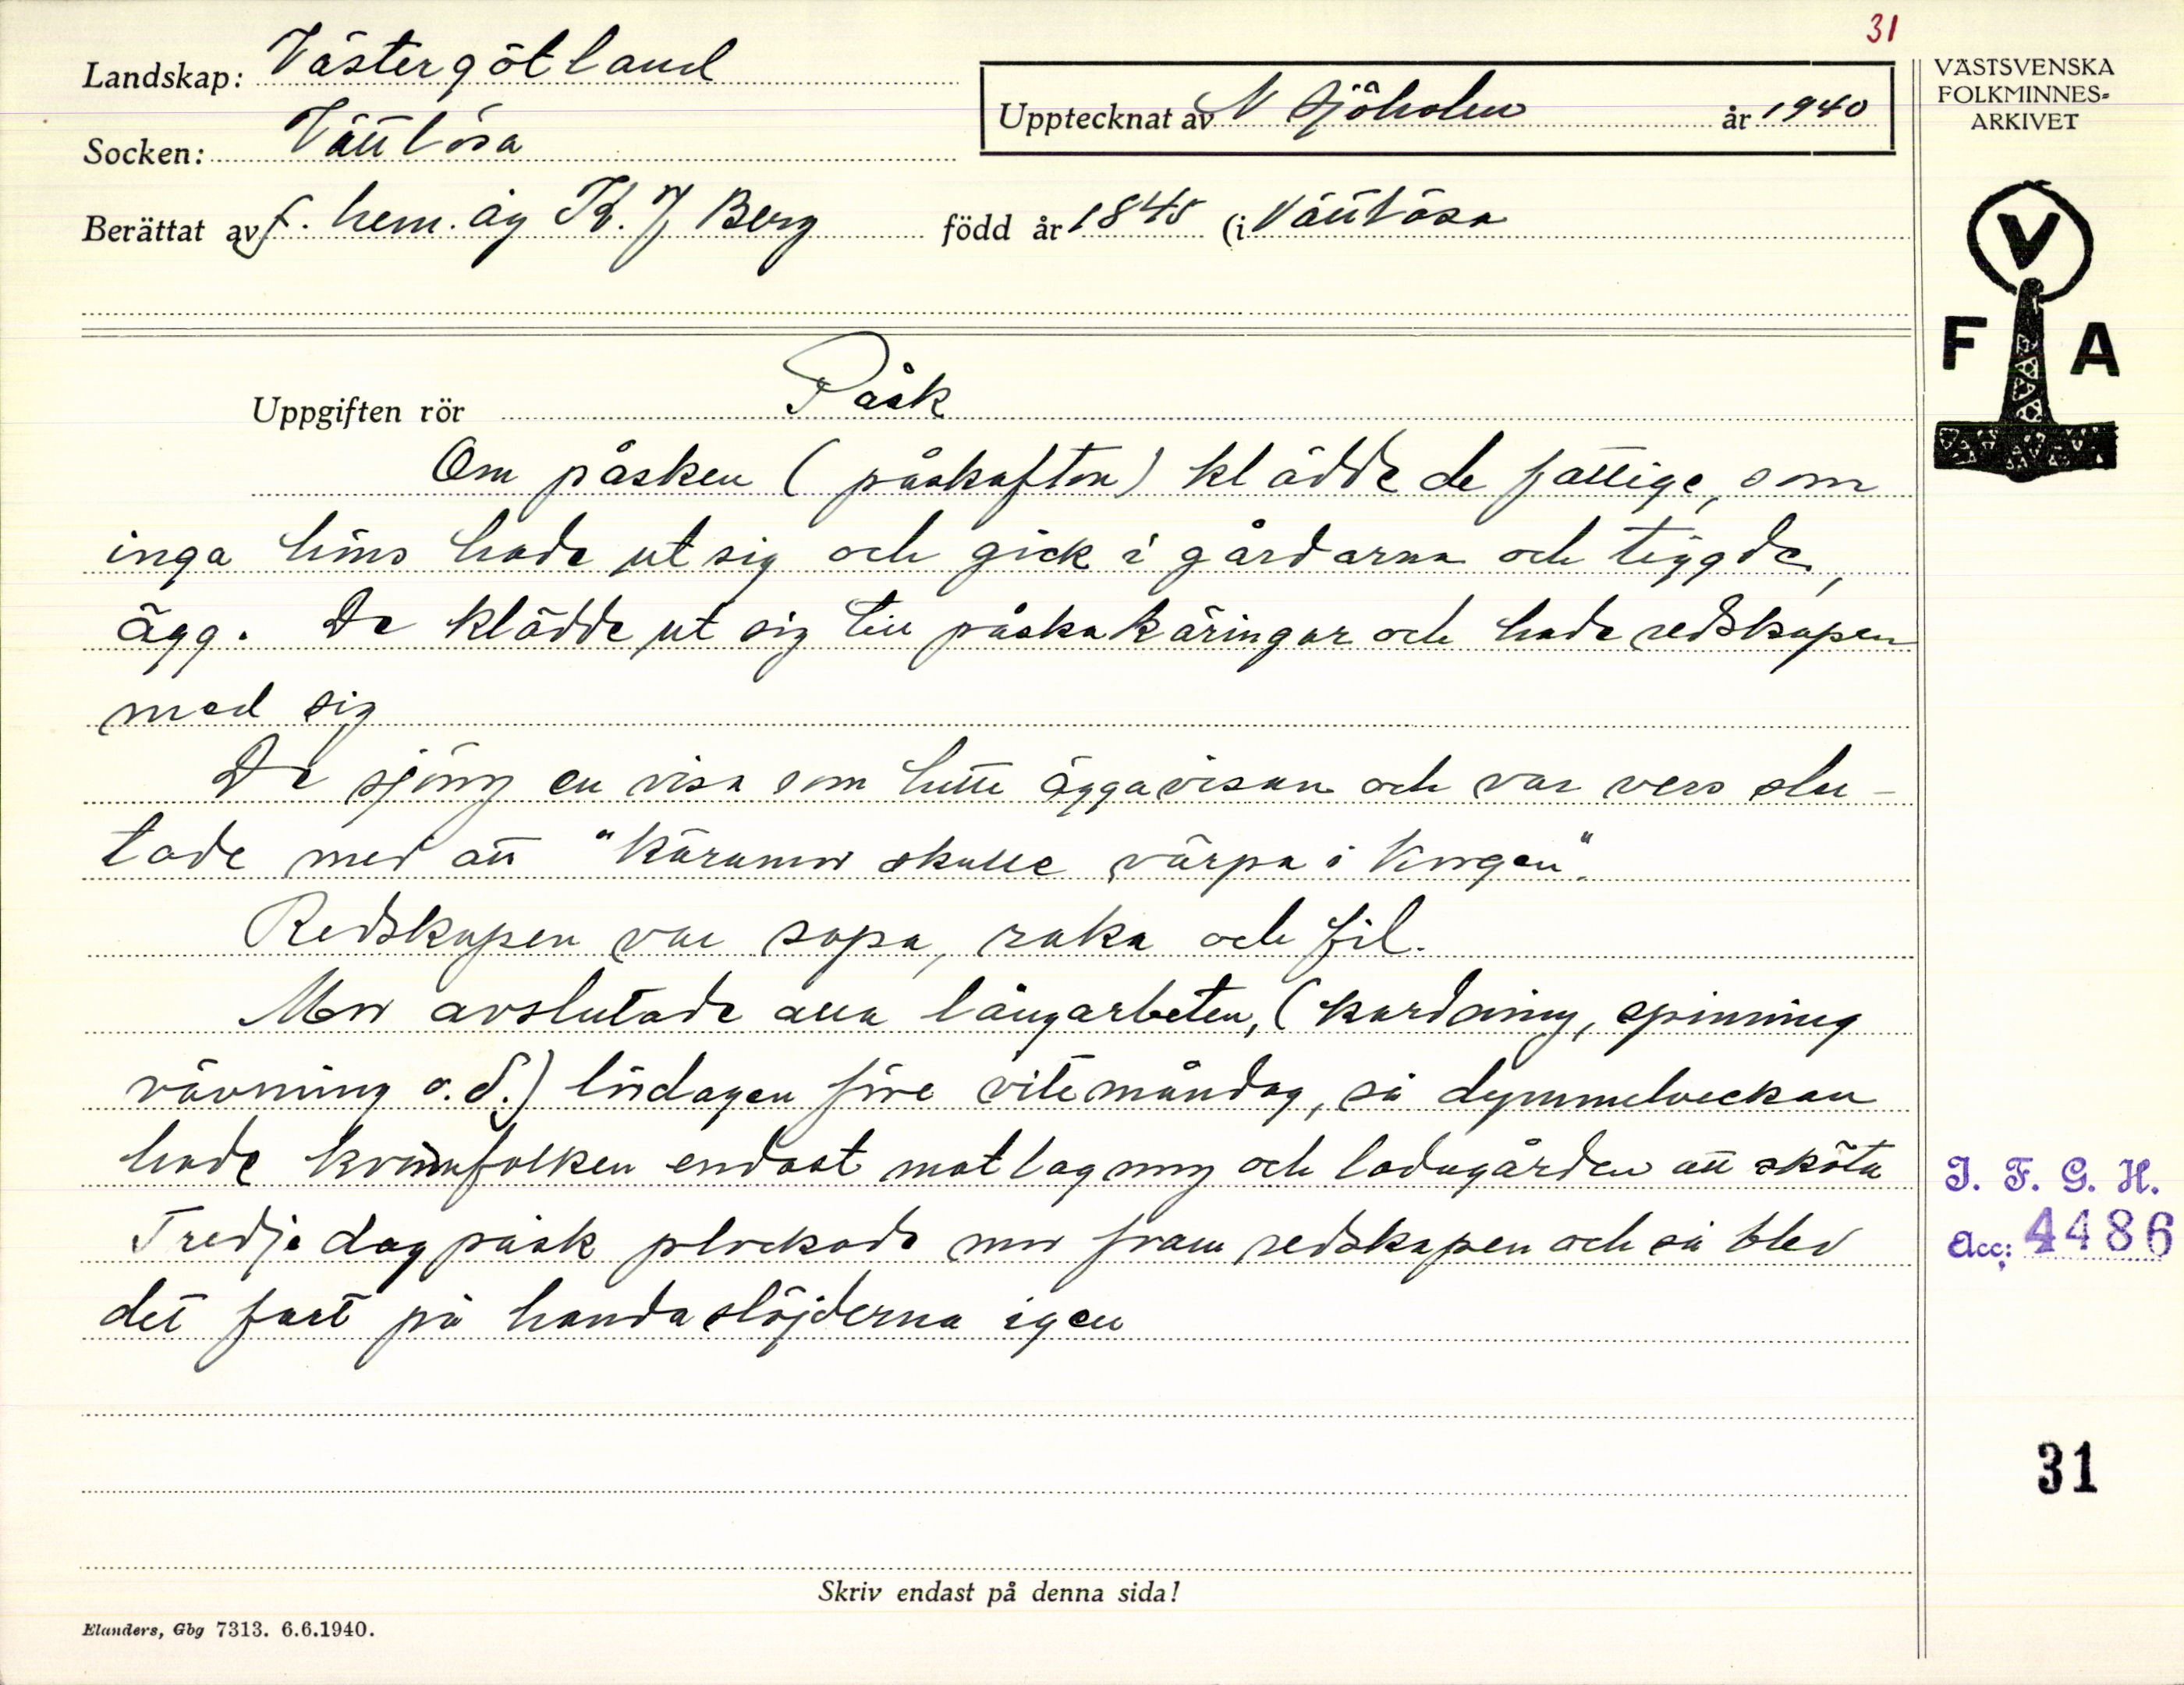 31
Landskap: Västergötland
Upptecknat av N Sjöholm år 1940
VÄSTSVENSKA
FOLKMINNES-
ARKIVET
Socken: Vättlösa
Berättat av f. hem. äg K. J Berg född år 1845 (i Vättlösa
V
F A
Uppgiften rör Påsk
Om påsken (påskafton) klädde de fattige, som
inga höns hade ut sig och gick i gårdarna och tiggde,
ägg. De klädde ut sig till påskakäringar och hade redskapen
med sig
De sjöng en visa som hette äggavisan och var vers slu-
tade med att "käramor skulle värpa i Vingen".
Redskapen var sopa, raka och fil.
Mor avslutade alla långarbeten, (kardning, spinning
vävning o.d.) lördagen före vitemåndag, så dymmelveckan
hade kvinnfolken endast matlagning och ladugården att sköta
Tredje dag påsk plockade mor fram redskapen och så blev
det fart på handaslöjderna igen
I. F. G. H.
Acc: 4486
31
Skriv endast på denna sida!
Elanders, Gbg 7313. 6.6.1940.